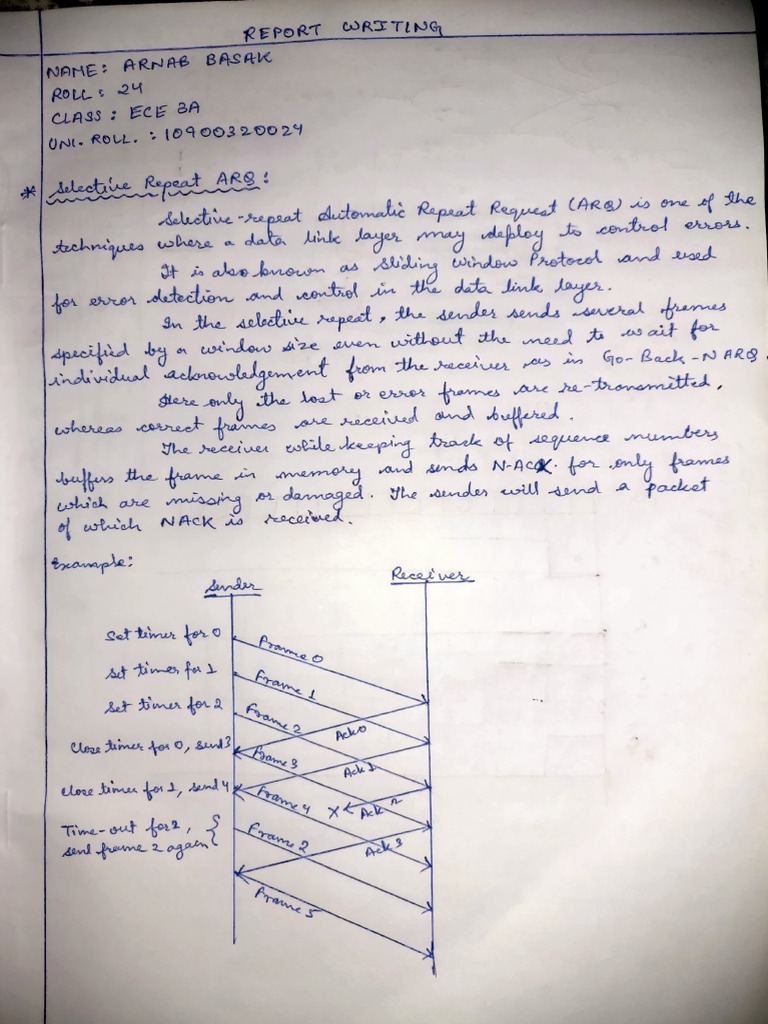 REPORT WRITING
NAME: ARNAB BASAK
ROLL: 24
CLASS: ECE 3A
UNI. ROLL. : 10900320024
* Selective Repeat ARQ:
Selective-repeat Automatic Repeat Request (ARQ) is one of the
techniques where a data link layer may deploy to control errors.
It is also known as Sliding Window Protocol and used
for error detection and control in the data link layer.
In the selective repeat, the sender sends several frames
specified by a window size even without the need to wait for
individual acknowledgement from the receiver as in Go-Back-N ARQ.
Here only the lost or error frames are re-transmitted,
whereas correct frames are received and buffered.
The receiver while keeping track of sequence numbers
buffers the frame in memory and sends N-ACK for only frames
which are missing or damaged. The sender will send a packet
of which NACK is received.
Example:
Sender
Receiver
Set timer for 0
Frame 0
Set timer for 1
Frame 1
Set timer for 2
Frame 2
Ack 0
Close timer for 0, send 3
Frame 3
Ack 1
Close timer for 1, send 4
Frame 4
X Ack 2
Time-out for 2,
send frame 2 again
Frame 2
Ack 3
Frame 5